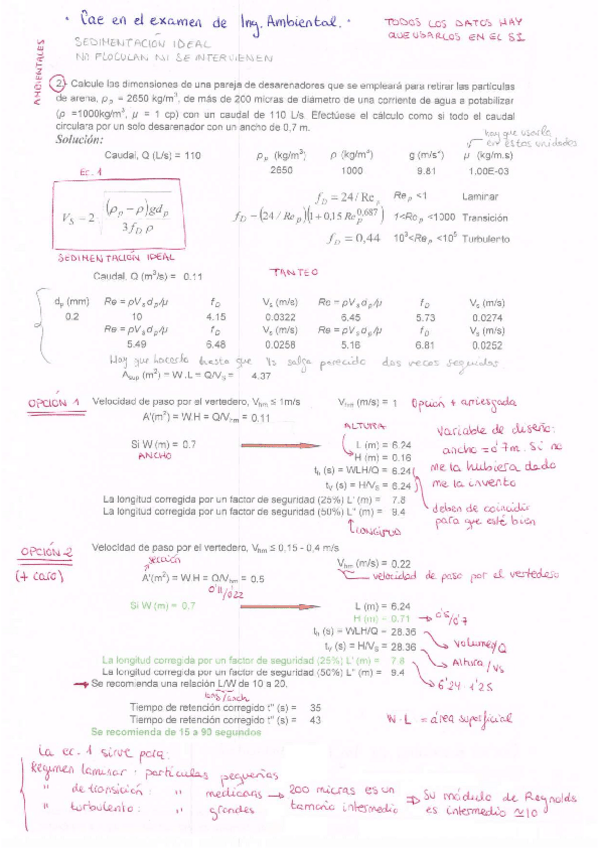 · Cae en el examen de Ing. Ambiental. ·
TODOS LOS DATOS HAY
QUE USARLOS EN EL SI
AMBIENTALES
SEDIMENTACIÓN IDEAL
NO FLOCULAN NI SE INTERVIENEN
2. Calcule las dimensiones de una pareja de desarenadores que se empleará para retirar las partículas
de arena, ρp = 2650 kg/m³, de más de 200 micras de diámetro de una corriente de agua a potabilizar
(ρ =1000kg/m³, μ = 1 cp) con un caudal de 110 L/s. Efectúese el cálculo como si todo el caudal
circulara por un solo desarenador con un ancho de 0,7 m.
hay que usarla
en estas unidades
Solución:
Caudal, Q (L/s) = 110 ρp (kg/m³) ρ (kg/m³) g (m/s²) μ (kg/m.s)
2650 1000 9.81 1.00E-03
Ec. 1
VS = 2 √((ρp − ρ)gdp / 3fD ρ)
fD = 24/Rep Rep <1 Laminar
fD = (24/Rep)(1+0,15 Rep^0,687) 1<Rep <1000 Transición
fD = 0,44 10³<Rep <10⁵ Turbulento
SEDIMENTACIÓN IDEAL
Caudal, Q (m³/s) = 0.11 TANTEO
dp (mm) Re = ρVsdp/μ fD Vs (m/s) Re = ρVsdp/μ fD Vs (m/s)
0.2 10 4.15 0.0322 6.45 5.73 0.0274
Re = ρVsdp/μ fD Vs (m/s) Re = ρVsdp/μ fD Vs (m/s)
5.49 6.48 0.0258 5.16 6.81 0.0252
Hay que hacerlo hasta que Vs salga parecido dos veces seguidas
Asup (m²) = W.L = Q/Vs = 4.37
OPCIÓN 1 Velocidad de paso por el vertedero, Vhm ≤ 1m/s Vhm (m/s) = 1 Opción + arriesgada
A'(m²) = W.H = Q/Vhm = 0.11
ALTURA
Si W (m) = 0.7 L (m) = 6.24
ANCHO H (m) = 0.16
th (s) = WLH/Q = 6.24
tv (s) = H/Vs = 6.24
Variable de diseño:
ancho = 0'7m. Si no
me la hubiera dado
me la invento
deben de coincidir
para que esté bien
La longitud corregida por un factor de seguridad (25%) L' (m) = 7.8
La longitud corregida por un factor de seguridad (50%) L'' (m) = 9.4
LONGITUD
OPCIÓN 2 Velocidad de paso por el vertedero, Vhm ≤ 0,15 - 0,4 m/s
(+ caro)
sección
Vhm (m/s) = 0.22
velocidad de paso por el vertedero
A'(m²) = W.H = Q/Vhm = 0.5
0'11/0'22
Si W (m) = 0.7 L (m) = 6.24
H (m) = 0.71 → 0'5/0'7
th (s) = WLH/Q = 28.36 volumen/Q
tv (s) = H/Vs = 28.36 Altura/Vs
La longitud corregida por un factor de seguridad (25%) L' (m) = 7.8 6'24 · 1'25
La longitud corregida por un factor de seguridad (50%) L'' (m) = 9.4
Se recomienda una relación L/W de 10 a 20.
long/anch
Tiempo de retención corregido t'' (s) = 35
Tiempo de retención corregido t'' (s) = 43
W · L = área superficial
Se recomienda de 15 a 90 segundos
La ec. 1 sirve para:
Regimen laminar: partículas pequeñas
" de transición: " medianas → 200 micras es un tamaño intermedio ⇒ Su módulo de Reynolds es intermedio ≃10
" turbulento: " grandes